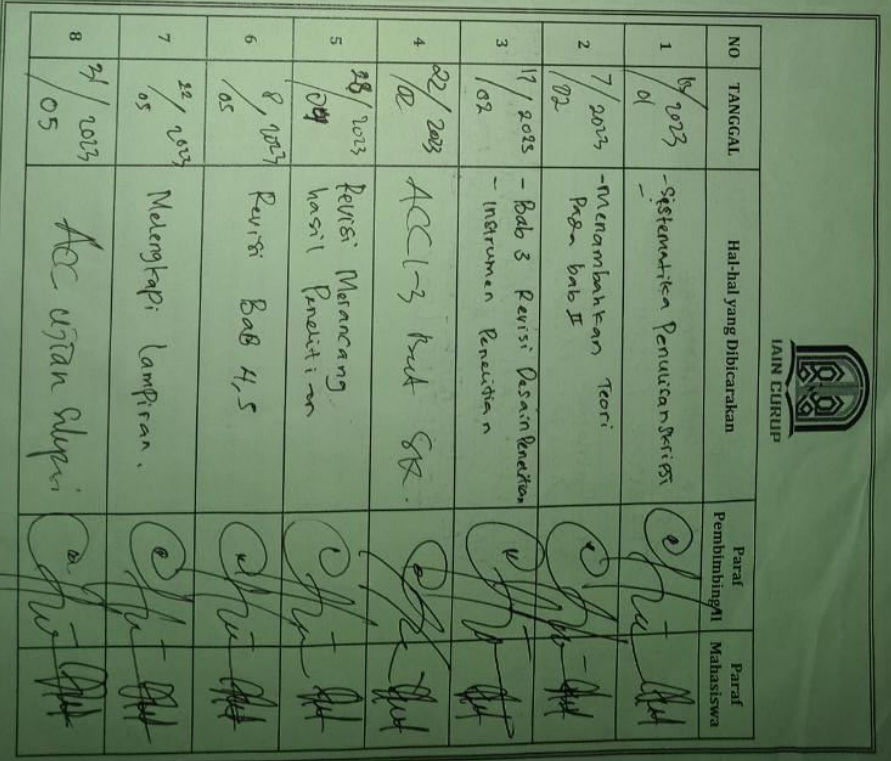 IAIN CURUP
NO TANGGAL Hal-hal yang Dibicarakan Paraf Pembimbing II Paraf Mahasiswa
1 /2023 /01 -Sistematika Penulisan Skripsi
2 7/2023 /02 -Menambahkan Teori
Pada bab II
3 17/2023 /02 - Bab 3 Revisi Desain Penelitian
- Instrumen Penelitian
4 22/2023 /02 ACC 1-3 SK.
5 28/2023 Revisi Merancang
hasil Penelitian
6 8/2023 /05 Revisi Bab 4,5
7 22/2023 /05 Melengkapi Lampiran.
8 31/2023 /05 ACC Ujian